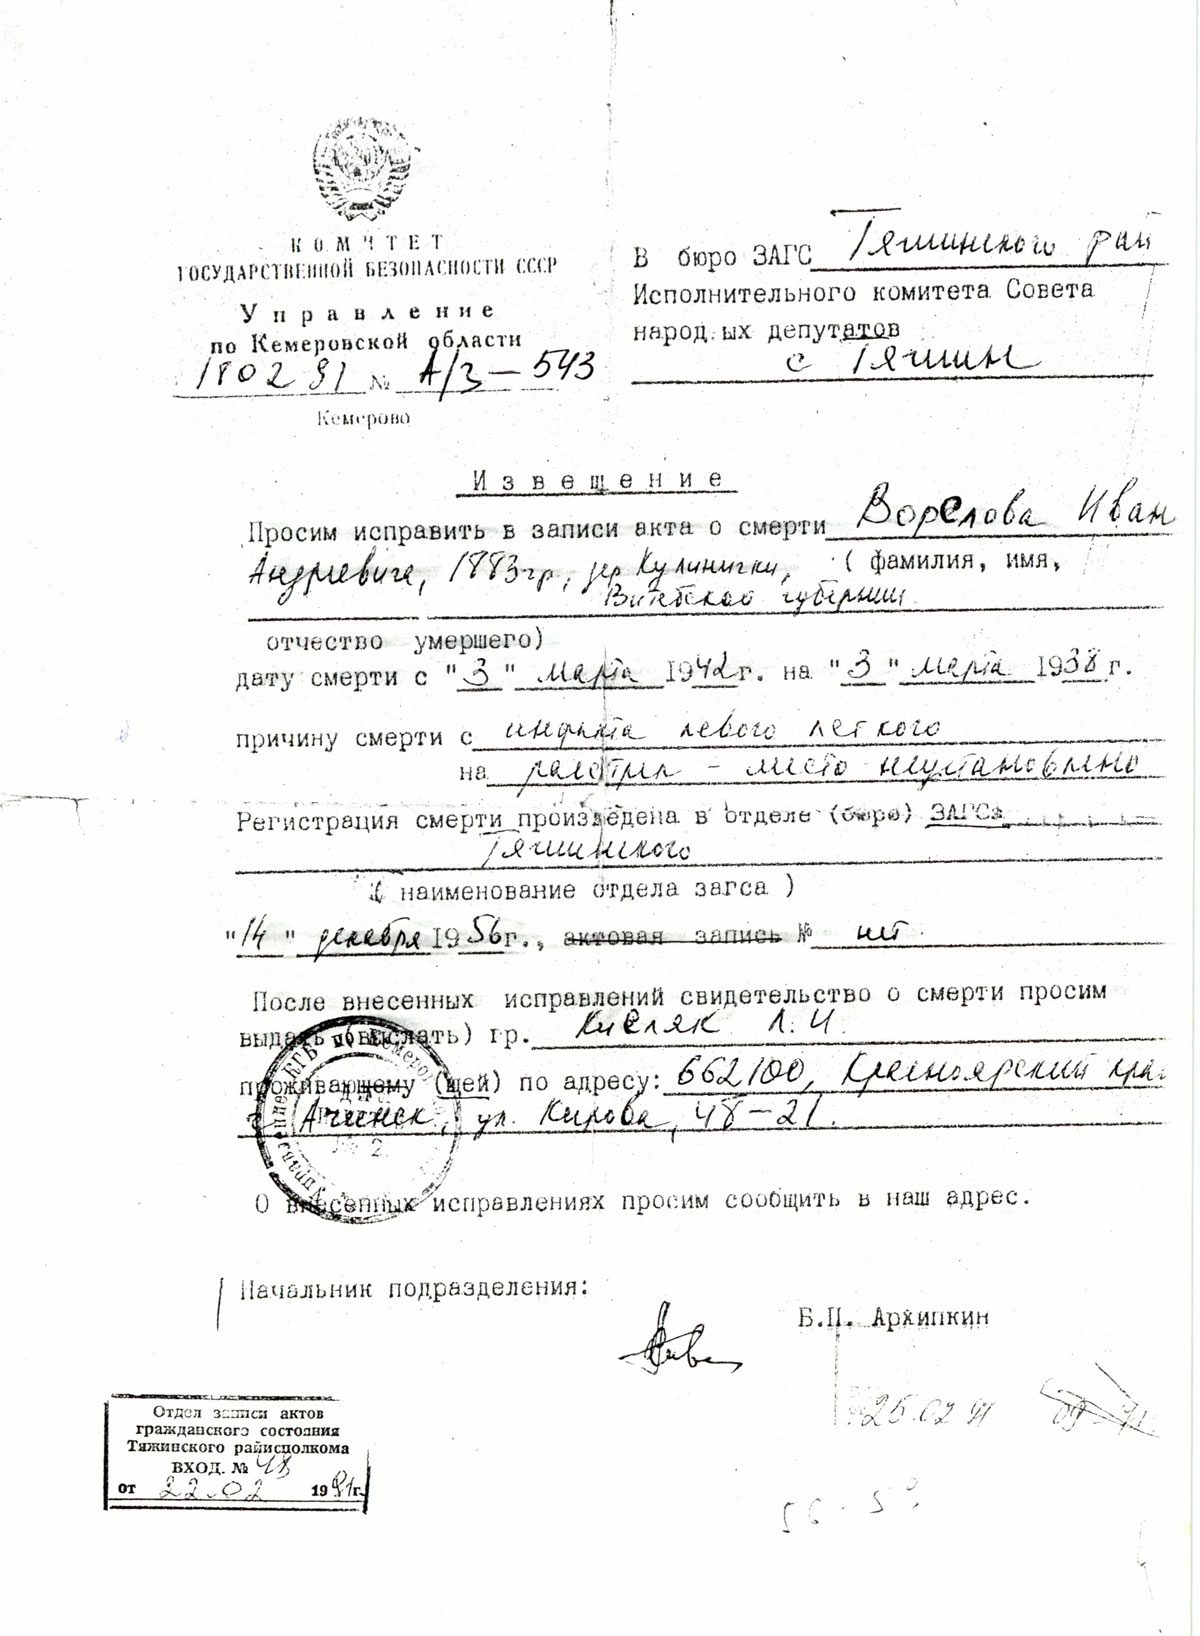 КОМИТЕТ
ГОСУДАРСТВЕННОЙ БЕЗОПАСНОСТИ СССР
Управление
по Кемеровской области
180291 № А/3-543
Кемерово
В бюро ЗАГС Тяжинского рай
Исполнительного комитета Совета
народ ых депутатов
с Тяжин
Извещение
Просим исправить в записи акта о смерти Ворслова Иван
Андреевича, 1883 гр, дер Кулинички, ( фамилия, имя,
Витебской губернии
отчество умершего)
дату смерти с "3" марта 1942г. на "3" марта 1938г.
причину смерти с инфаркта левого легкого
на расстрел - место неустановлено
Регистрация смерти произведена в отделе (бюро) ЗАГСа
Тяжинского
( наименование отдела загса )
"14" декабря 1956г., актовая запись № нет.
После внесенных исправлений свидетельство о смерти просим
выдать (выслать) гр. Кисляк Л.И.
проживающему (щей) по адресу: 662100, Красноярский кра
г Ачинск, ул. Кирова, 48-21.
О внесенных исправлениях просим сообщить в наш адрес.
Начальник подразделения:
Б.П. Архипкин
25.02 91
Отдел записи актов
гражданского состояния
Тяжинского райисполкома
ВХОД. № 48
от 22.02 1991г.